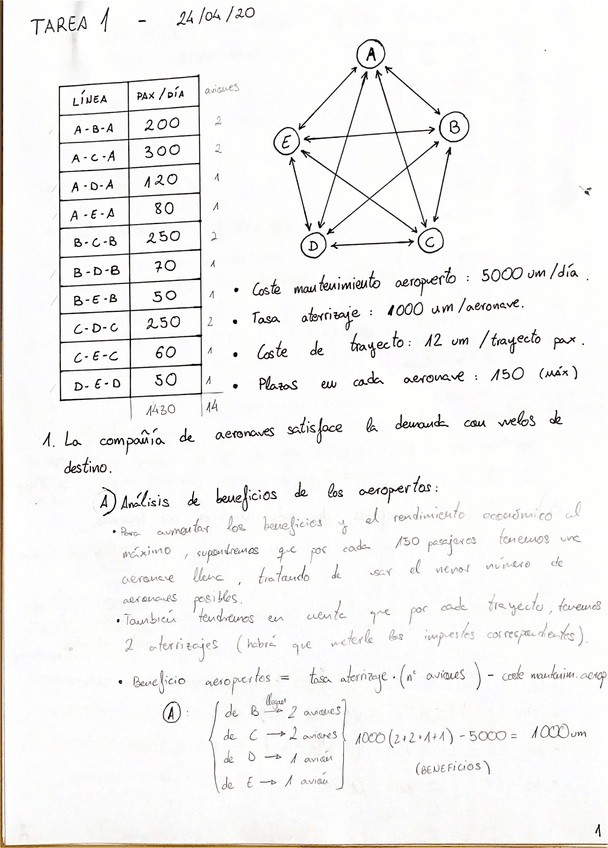 TAREA 1 - 24/04/20
LÍNEA PAX/DÍA aviones
A-B-A 200 2
A-C-A 300 2
A-D-A 120 1
A-E-A 80 1
B-C-B 250 2
B-D-B 70 1
B-E-B 50 1
C-D-C 250 2
C-E-C 60 1
D-E-D 50 1
1430 14
A
E B
D C
• Coste mantenimiento aeropuerto : 5000 um/día.
• Tasa aterrizaje : 1000 um/aeronave.
• Coste de trayecto: 12 um/trayecto pax.
• Plazas en cada aeronave : 150 (máx)
1. La compañía de aeronaves satisface la demanda con vuelos de
destino.
A) Análisis de beneficios de los aeropertos:
• Para aumentar los beneficios y el rendimiento económico al
máximo, supondremos que por cada 150 pasajeros tenemos una
aeronave llena, tratando de usar el menor número de
aeronaves posibles.
• También tendremos en cuenta que por cada trayecto, tenemos
2 aterrizajes (habrá que meterle los impuestos correspondientes).
• Beneficio aeropuertos = tasa aterrizaje · (nº aviones) - coste mantenim. aerop
A : de B llegan → 2 aviones
de C → 2 aviones
de D → 1 avión
de E → 1 avión
1000(2+2+1+1) - 5000 = 1000 um
(BENEFICIOS)
1